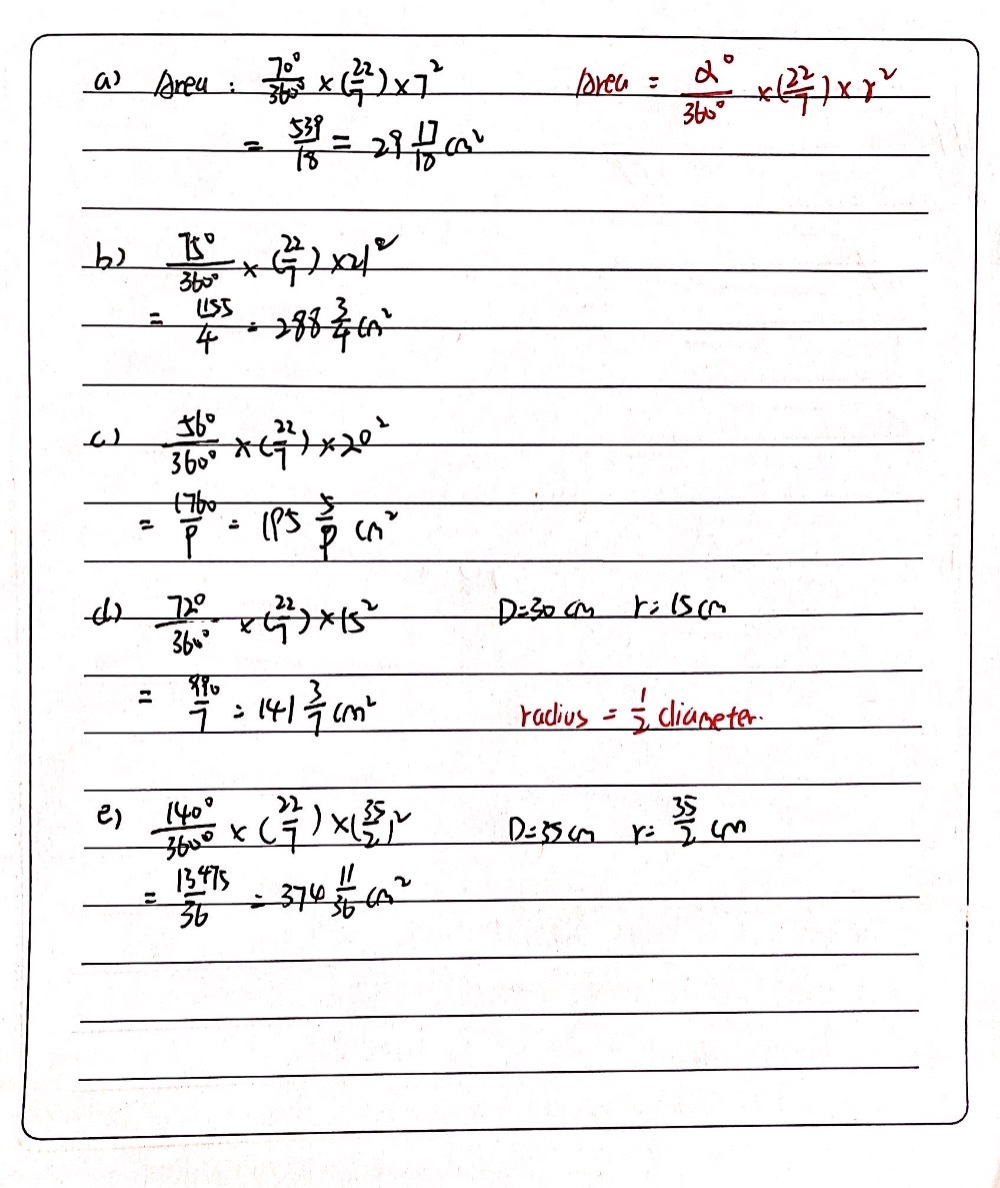 a) Area : 70°/360° × (22/7) × 7²
Area = α°/360° × (22/7) × r²
= 539/18 = 29 17/18 cm²
b) 75°/360° × (22/7) × 21²
= 1155/4 = 288 3/4 cm²
c) 56°/360° × (22/7) × 20²
= 1760/9 = 195 5/9 cm²
d) 72°/360° × (22/7) × 15²
D=30 cm r=15 cm
= 990/7 = 141 3/7 cm²
radius = 1/2 diameter.
e) 140°/360° × (22/7) × (35/2)²
D=35 cm r= 35/2 cm
= 13475/36 = 374 11/36 cm²